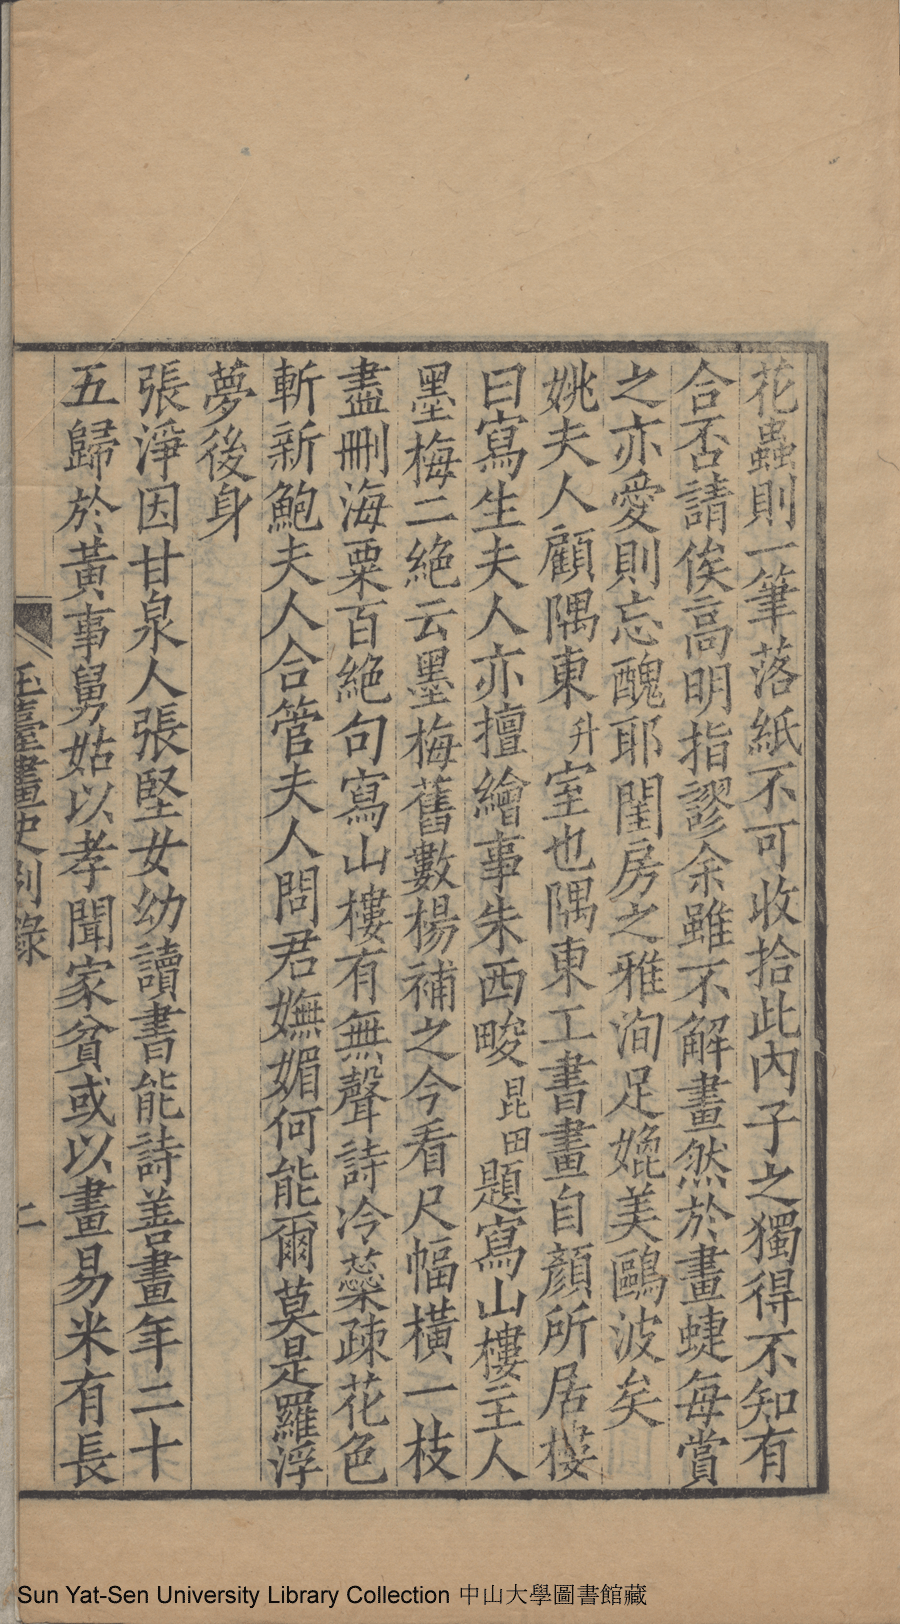 花蟲則一筆落紙不可收拾此內子之獨得不知有
合否請俟高明指謬余雖不解畫然於畫蜨每賞
之亦愛則忘醜耶閨房之雅洵足媲美鷗波矣
姚夫人顧隅東升室也隅東工書畫自顏所居樓
曰寫生夫人亦擅繪事朱西畯昆田題寫山樓主人
墨梅二絕云墨梅舊數楊補之今看尺幅橫一枝
盡刪海粟百絕句寫山樓有無聲詩冷蘂疎花色
斬新鮑夫人合管夫人問君嫵媚何能爾莫是羅浮
夢後身
張淨因甘泉人張堅女幼讀書能詩善畫年二十
五歸於黃事舅姑以孝聞家貧或以畫易米有長
玉臺畫史別錄
二
Sun Yat-Sen University Library Collection 中山大學圖書館藏